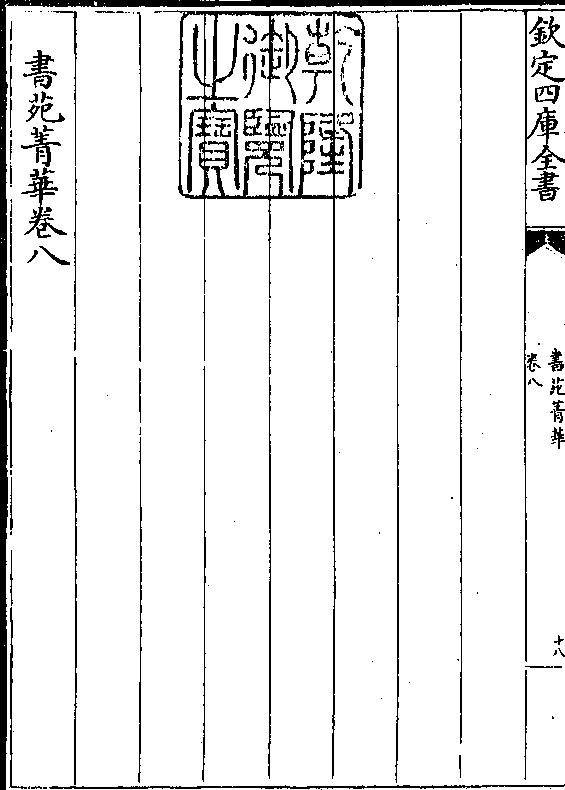 欽定四庫全書
書苑菁華
卷八
十八
乾隆御覽之寶
書苑菁華卷八